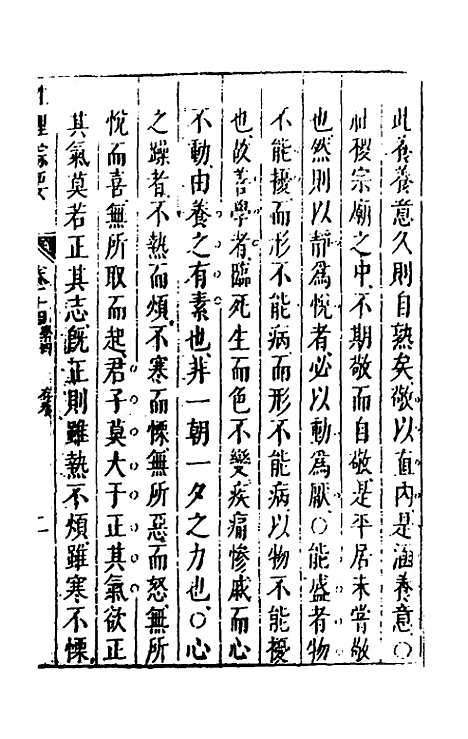 此養養意久則自熟矣敬以直內是涵養意○
社稷宗廟之中不期敬而自敬是平居未嘗敬
也然則以靜爲悅者必以動爲厭○能盛者物
不能擾而形不能病而形不能病以物不能擾
也故善學者臨死生而色不變疾痛慘戚而心
不動由養之有素也非一朝一夕之力也○心
之躁者不熱而煩不寒而慄無所惡而怒無所
悅而喜無所取而起君子莫大于正其氣欲正
其氣莫若正其志旣正則雖熱不煩雖寒不慄
性理綜要 卷二十四